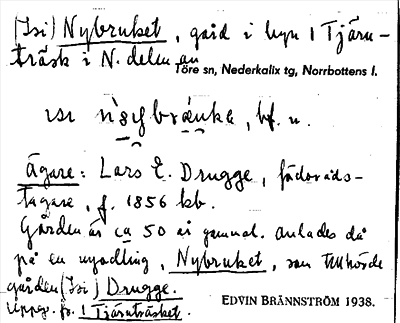 (Isi) Nybruket, gård i byn 1 Tjärn-
träsk i N. delen av
Töre sn, Nederkalix tg, Norrbottens l.
bf. n.
Ägare: Lars E. Drugge, födoråds-
tagare, f. 1856 kb.
Gården är ca 50 år gammal. Anlades då
på en nyodling, Nybruket, som tillhörde
gården (Isi) Drugge.
Uppg. fr. 1 Tjärnträsket.
EDVIN BRÄNNSTRÖM 1938.